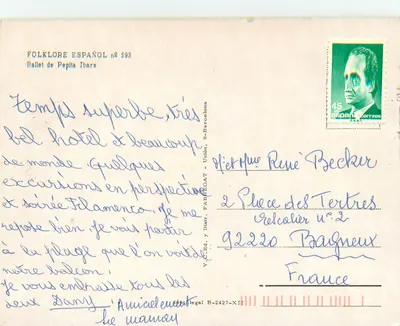 FOLKLORE ESPAÑOL nº 593
Ballet de Pepita Ibars
Temps superbe, très
bel hotel et beaucoup
de monde. Quelques
excursions en perspective
et soirée Flamenco. Je me
repose bien. Je vous
à la plage que l'on voit de
notre balcon.
Je vous embrasse tous les
deux Dany. Amicalement
maman
45
españa
correos
Mr et Mme René Becker
2 Place des Tertres
Escalier nº 2
92220 Bagneux
France
Depósito legal B-2427-XII